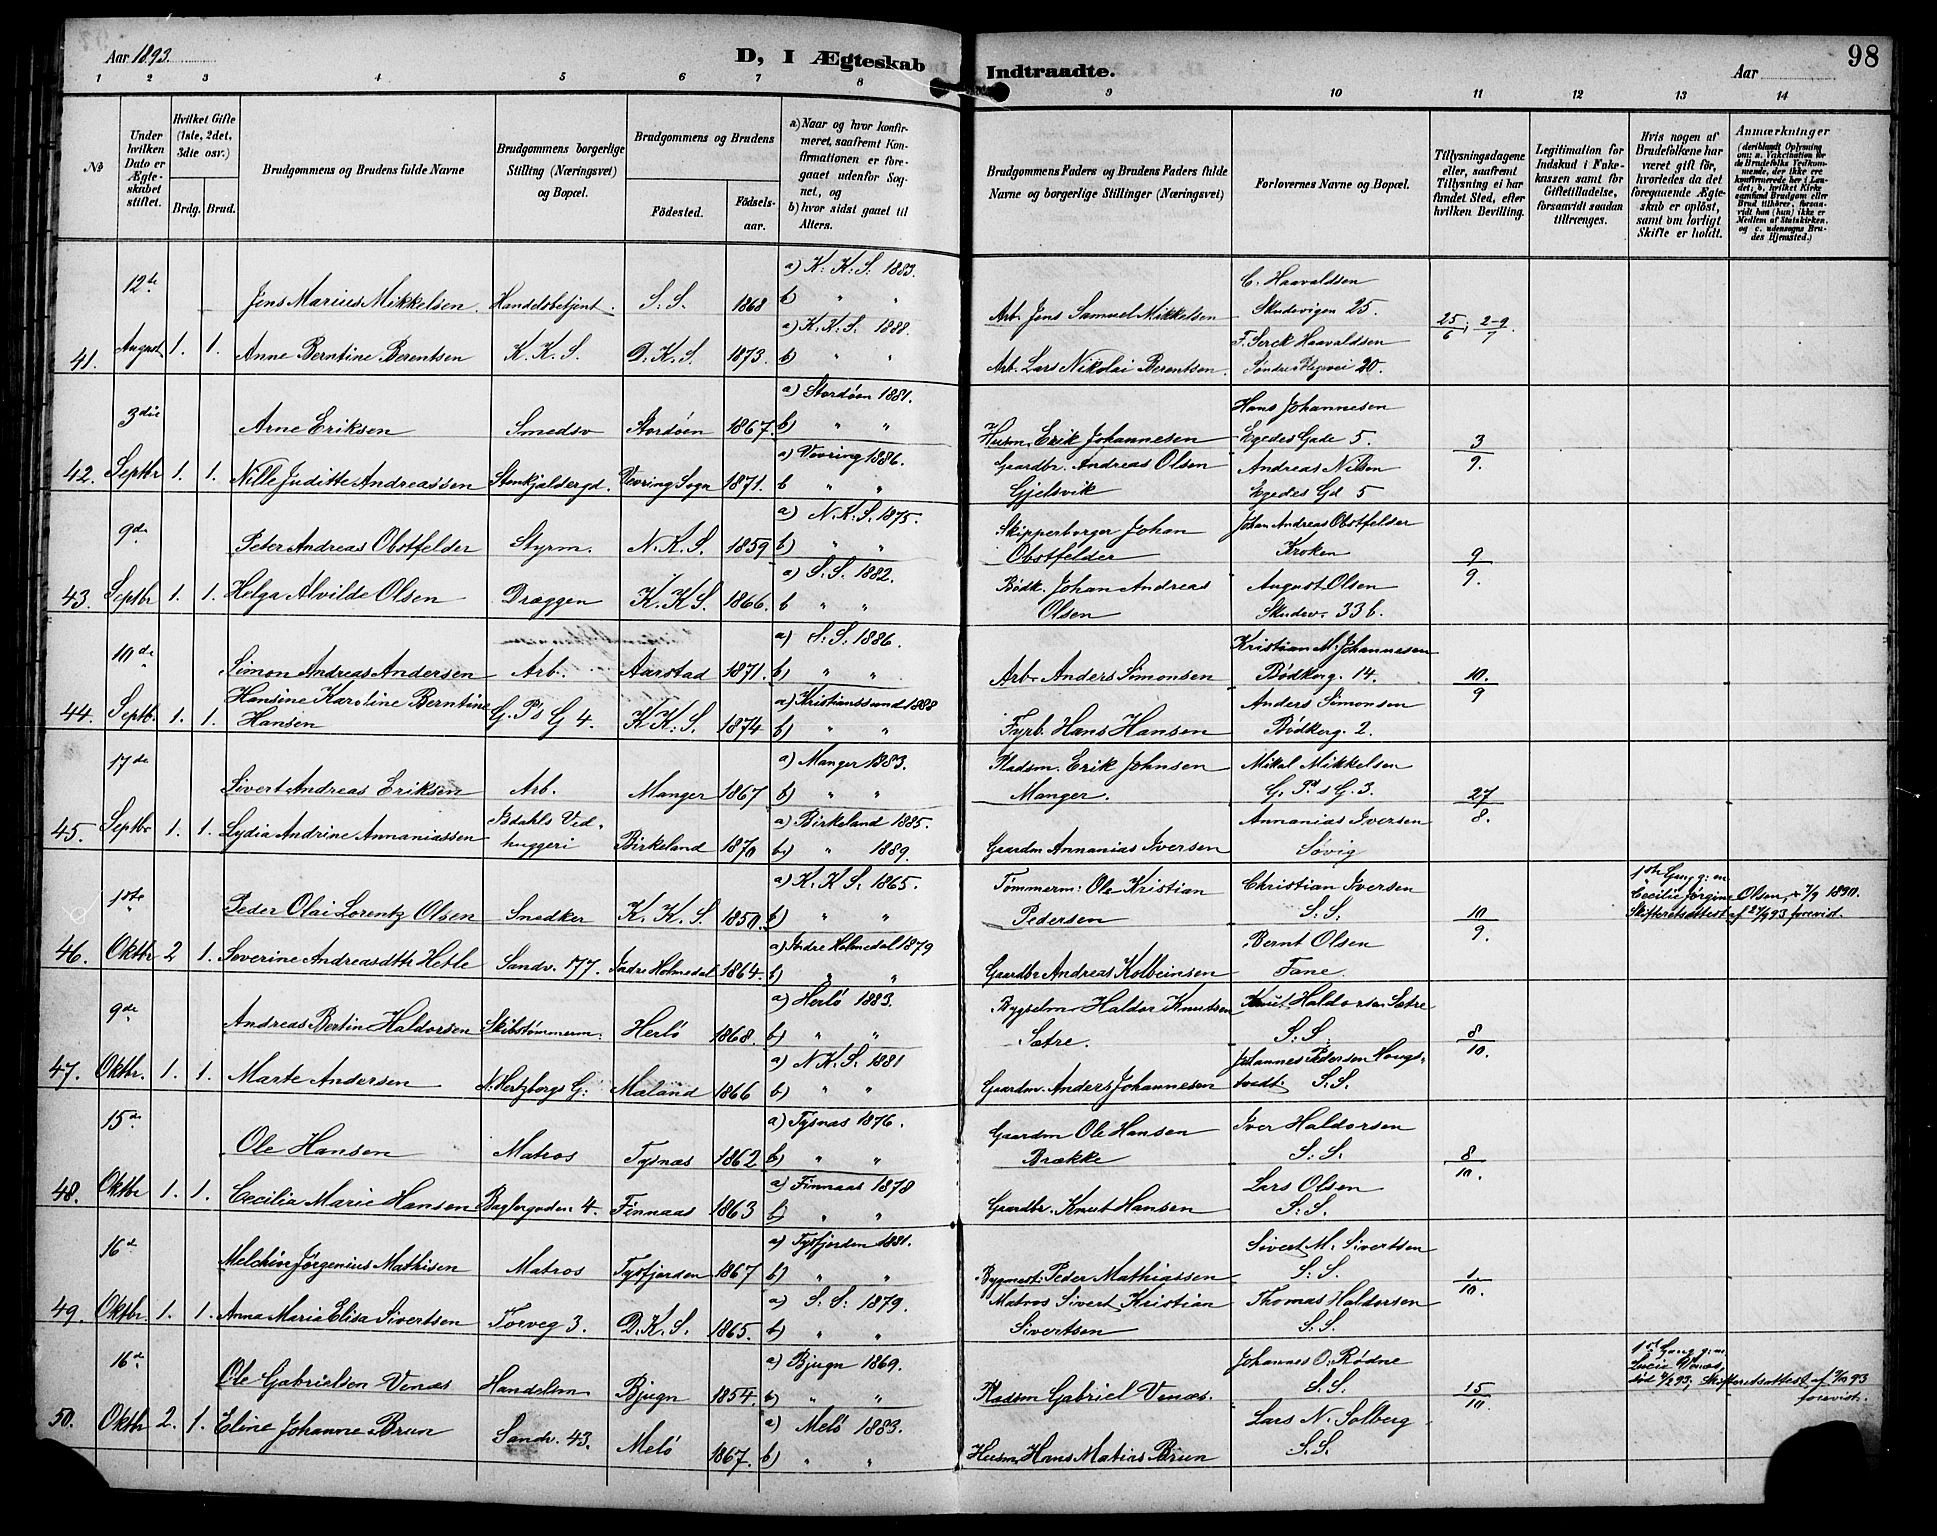 98
Aar 1893.
D, I Ægteskab Indtraadte.
Aar
1 2 3 4 5 6 7 8 9 10 11 12 13 14
No
Under hvilken Dato er Ægteskabet stiftet.
Hvilket Gifte (1ste, 2det, 3die osv.)
Brdg. Brud.
Brudgommens og Brudens fulde Navne
Brudgommens borgerlige Stilling (Næringsvei) og Bopæl.
Brudgommens og Brudens
Födested.
Födselsaar.
a) Naar og hvor konfirmeret, saafremt Konfirmationen er foregaaet udenfor Sognet, og
b) hvor sidst gaaet til Alters.
Brudgommens Faders og Brudens Faders fulde Navne og borgerlige Stillinger (Næringsvei)
Forlovernes Navne og Bopæl.
Tillysningsdagene eller, saafremt Tillysning ei har fundet Sted, efter hvilken Bevilling.
Legitimation for Indskud i Enkekassen samt for Giftetilladelse, forsaavidt saadan tiltrænges.
Hvis nogen af Brudefolkene har været gift för, hvorledes da det foregaaende Ægteskab er oplöst, samt om lovligt Skifte er holdt.
Anmærkninger (deriblandt Oplysning om: a. Vakcination for de Brudefolks Vedkommende, der ikke ere konfirmerede her i Landet; b. hvilket Kirkesamfund Brudgom eller Brud tilhörer, forsaavidt han (hun) ikke er Medlem af Statskirken, og c. udensogns Brudes Hjemsted.)
41. 12te August 1. 1.
Jens Marius Mikkelsen Handelsbetjent. S. S. 1868 a) K. K. S. 1883. b) " "
Arb. Jens Samuel Mikkelsen C. Haavaldsen Skudevigen 25. 25/6; 2-9/7.
Anne Berntine Berentsen K. K. S. D. K. S. 1873. a) K. K. S. 1888. b) " "
Arb. Lars Nikolai Berentsen F. Serck Haavaldsen Søndre 20.
42. 3die Septbr 1. 1.
Arne Eriksen Smedsv Stordöen 1867. a) Stordöen 1881. b) " "
Husm. Erik Johannesen Hans Johannesen Egedes Gade 5. 3/9.
Nille Juditte Andreassen Stenkjældergd. Vevring Sogn 1871. a) Vevring 1886. b " "
Gaardbr. Andreas Olsen Gjelsvik Andreas Nilsen Egedes Gd 5
43. 9de Septbr 1. 1.
Peter Andreas Obstfelder Styrm. N. K. S. 1859 a) N. K. S. 1875. b) " "
Skipperborger Johan Obstfelder Johan Andreas Obstfelder Kroken 9/9.
Helga Alvilde Olsen Dræggen K. K. S. 1866. a) S. S. 1882. b " "
Bödk. Johan Andreas Olsen August Olsen Skudev. 33 b.
44. 10de Septb. 1. 1.
Simon Andreas Andersen Arb. Aarstad 1871. a) S. S. 1886. b) " "
Arb. Anders Simonsen Kristian M. Johannesen Bödkerg. 14. 10./9
Hansine Karoline Berntine Hansen G. Ps G 4. K. K. S. 1874 a) Kristianssund 1888 b) " "
Fyrb. Hans Hansen Anders Simonsen Bödkerg. 2.
45. 17de Septbr 1. 1.
Sivert Andreas Eriksen Arb. Manger 1867 a) Manger 1883. b) " "
Pladsm. Erik Johnsen Manger. Mikal Mikkelsen G. Ps G. 3. 27/8.
Lydia Andrine Annaniassen Bdahls Vedhuggeri Birkeland 1870 a) Birkeland 1885. b) " 1889.
Gaardm Annanias Iversen Annanias Iversen Søvig
46. 1ste Oktbr 2 1.
Peder Olai Lorentz Olsen Snedker K. K. S. 1850. a) K. K. S. 1865. b) " "
Tömmerm: Ole Kristian Pedersen Christian Iversen S. S. 10/9.
1ste Gang g: m Cecilie Jørgine Olsen, + 7/9 1890. Skifteretsattest af 27/9 93 forevist.
Severine Andreasdttr Hetle Sandv. 177. Indre Holmedal 1864. a) Indre Holmedal 1879 b) " "
Gaardbr Andreas Kolbeinsen Bernt Olsen Fane.
47. 9de Oktbr. 1. 1.
Andreas Bertin Haldorsen Skibstømmerm Herlö 1868. a) Herlö 1883. b) " "
Bygselm Haldor Knutsen Sætre. Knut Haldorsen Sætre S. S. 8/10.
Marte Andersen N. Hertzbergs G: Maland 1866 a) N. K. S. 1881 b) " "
Gaardm. Anders Johannesen Johannes Pedersen Hougstvedt. S. S.
48. 15de Oktbr 1. 1.
Ole Hansen Matros Tysnæs 1862 a) Tysnæs 1876. b) " "
Gaardm Ole Hansen Brække Iver Haldorsen S. S. 8/10.
Cecilia Marie Hansen Baglergaden 4. Finnaas 1863 a) Finnaas 1878 b) " "
Gaardbr. Knut Hansen Lars Olsen S. S.
49. 16de Oktbr. 1. 1.
Melchior Jørgenius Mathisen Matros Tysfjorden 1867 a) Tysfjorden 1881. b) " "
Bygmest: Peder Mathiassen Sivert M. Sivertsen S. S. 1./10.
Anna Maria Elisa Sivertsen Torveg 3. D. K. S. 1865. a) S. S. 1879. b) " "
Matros Sivert Kristian Sivertsen Thomas Haldorsen S. S.
50. 16de Oktbr 2. 1.
Ole Gabrielsen Venæs Handelsm Bjugn 1854. a) Bjugn 1869. b) " "
Pladsm Gabriel Venæs. Johannes O. Rødne S. S. 15/10.
1ste Gang g: m. Lucie Venæs, død 4/2 93; Skifteretsattest af 93 forevist.
Eline Johanne Brun Sandv. 43. Melö 1867. a) Melö 1883. b) " "
Husm. Hans Matias Brun Lars N. Solberg S. S.